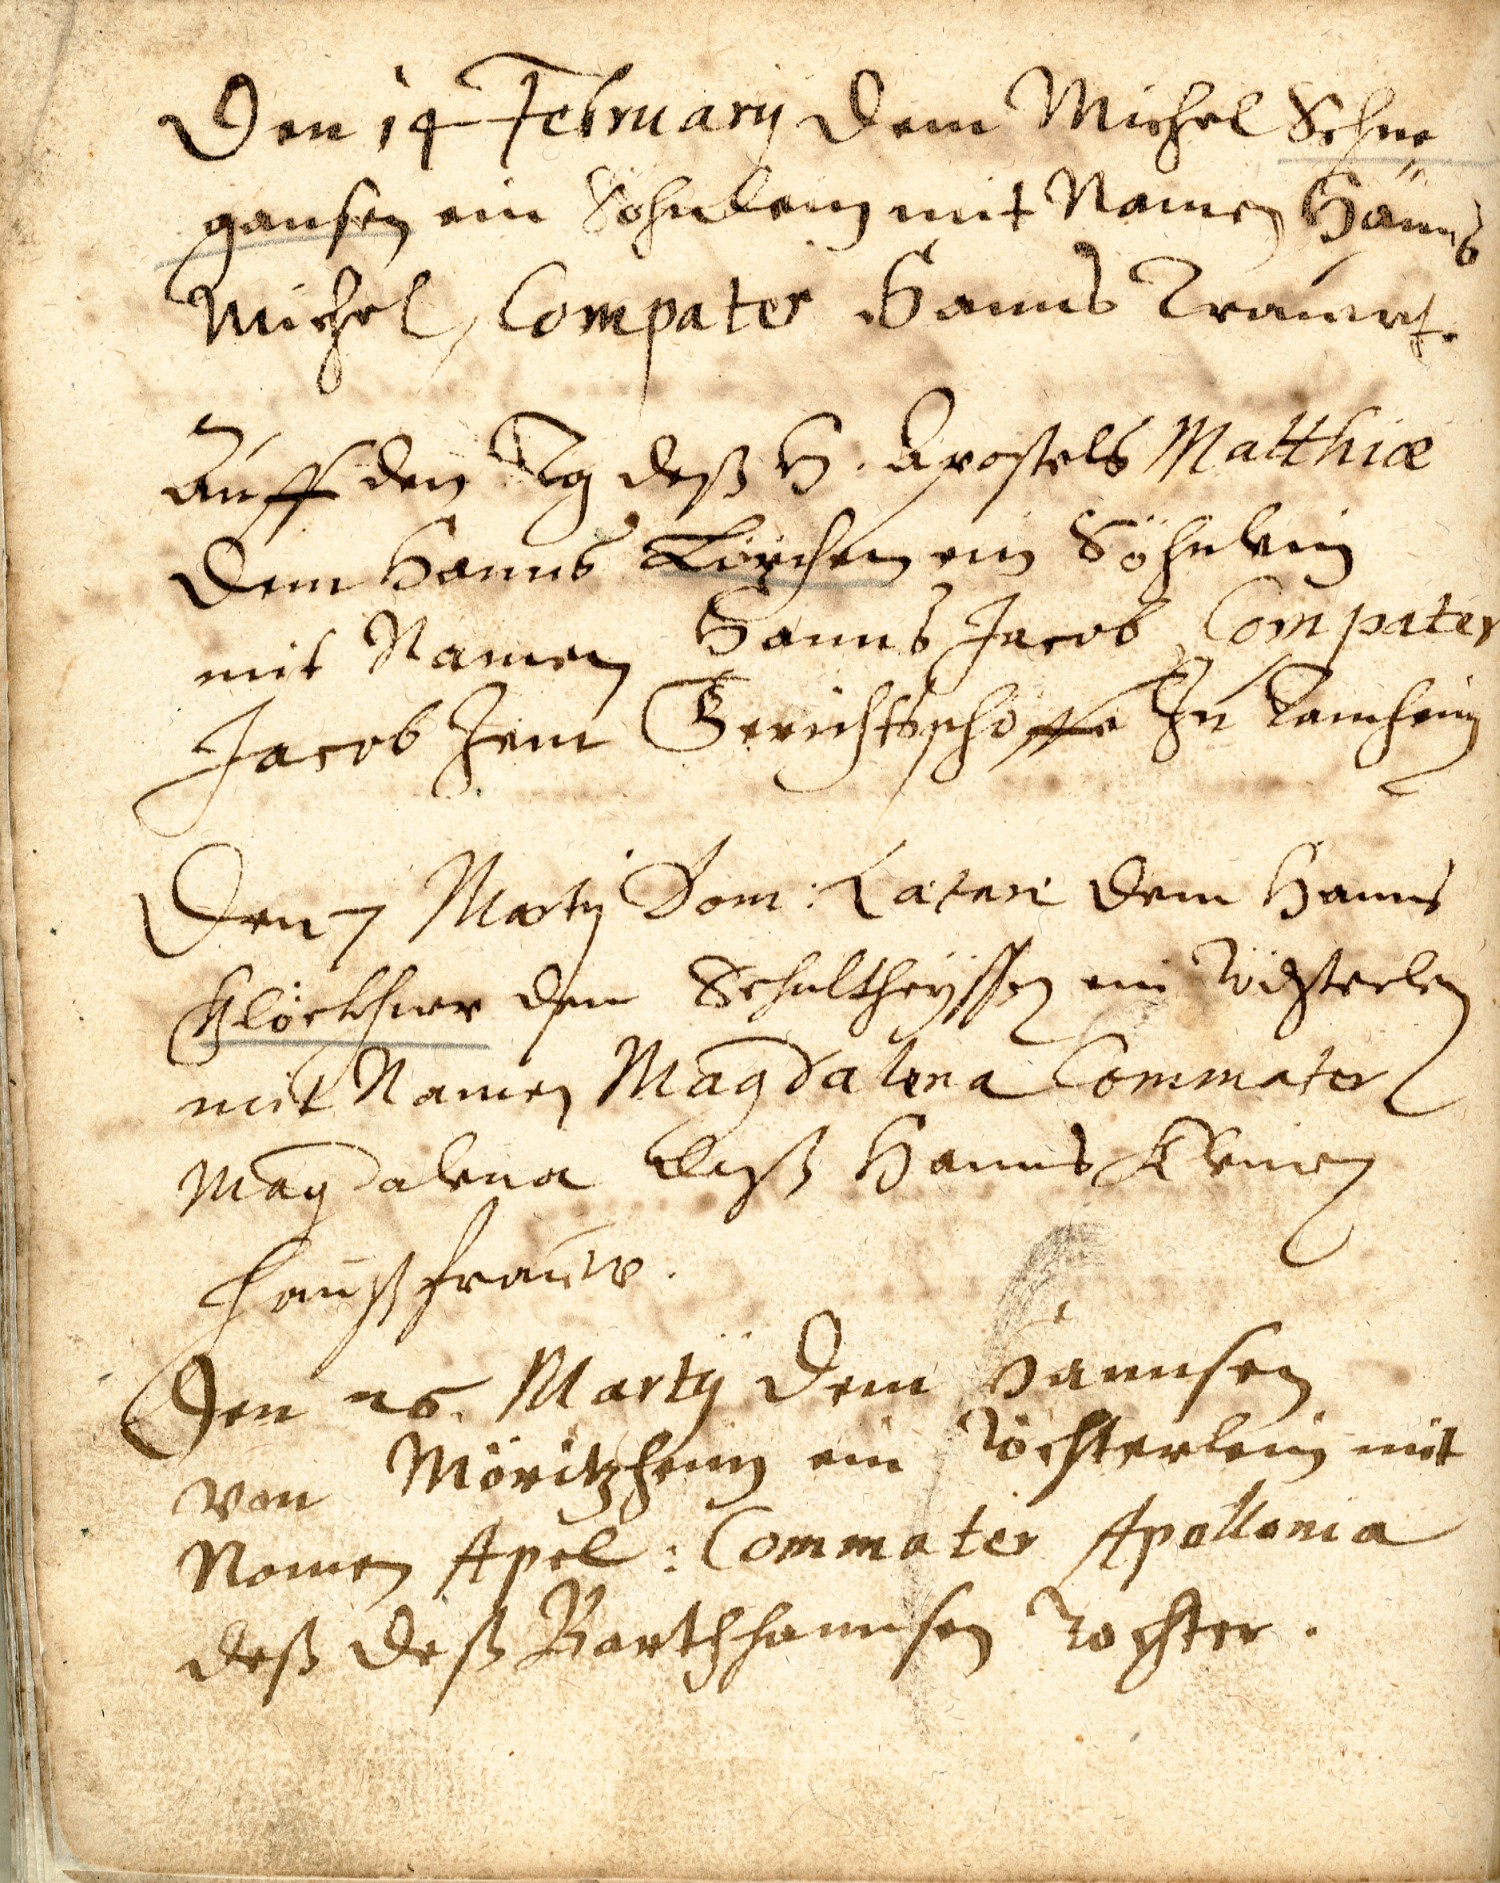 Den 14 February dem Michel Schne
gansen ein Söhnlein mit Namen Hanns
Michel, Compater Hanns Trauwt.
Auff den Tg deß H. Apostels Matthiæ
dem Hanns Lörchen ein Söhnlein
mit Namen Hanns Jacob, Compater
Jacob Jem Gerichtsschöffe Zu
Den 7 Martij Dom: Lætare dem Hanns
Klöckhner dem Schultheyssen ein Töchterlen
mit Namen Magdalena Commater
Magdalena deß Hanns Kleinen
haußfrauw.
Den 26. Martij dem Hannsen
von Möritzheim ein Töchterlein mit
Namen Apel: Commater Apollonia
deß deß Barthhannsen Tochter.